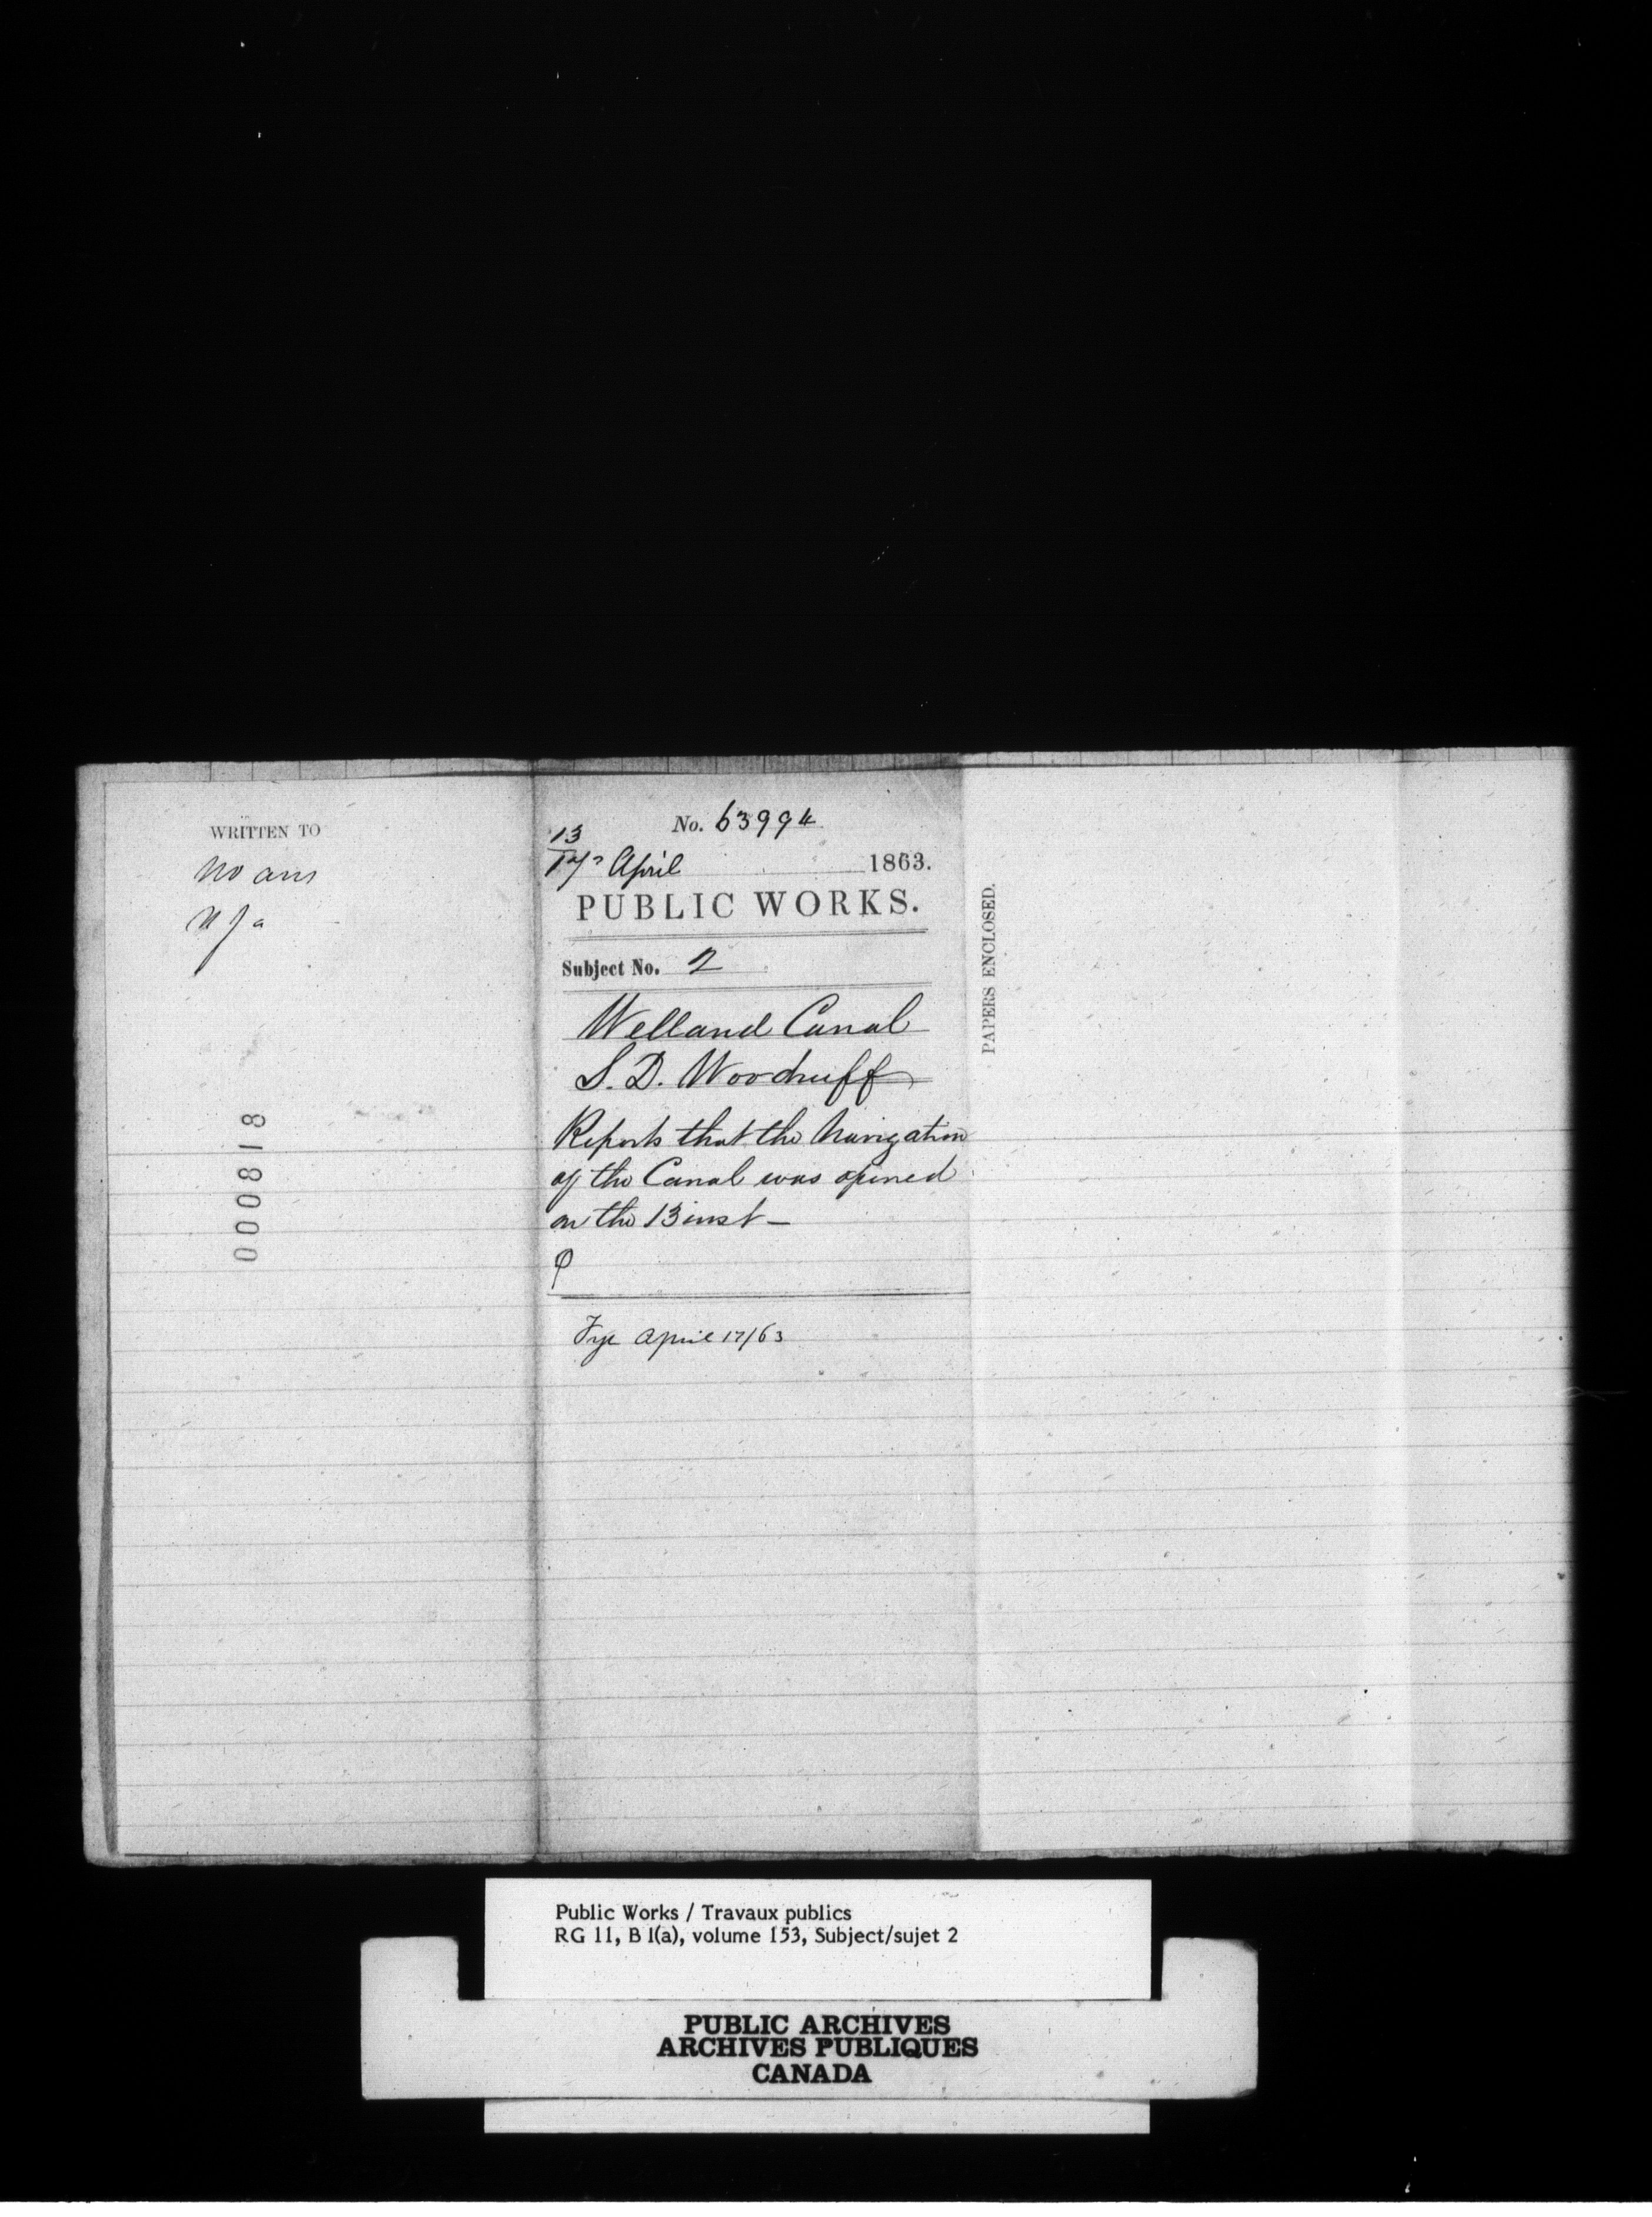 WRITTEN TO
no ans
000818
No. 63994
13
17 April 1863.
PUBLIC WORKS.
Subject No. 2
Welland Canal
S. D. Woodruff
Reports that the Navigation
of the Canal was opened
on the 13 inst -
April 17/63
PAPERS ENCLOSED.
Public Works / Travaux publics
RG 11, B 1(a), volume 153, Subject/sujet 2
PUBLIC ARCHIVES
ARCHIVES PUBLIQUES
CANADA